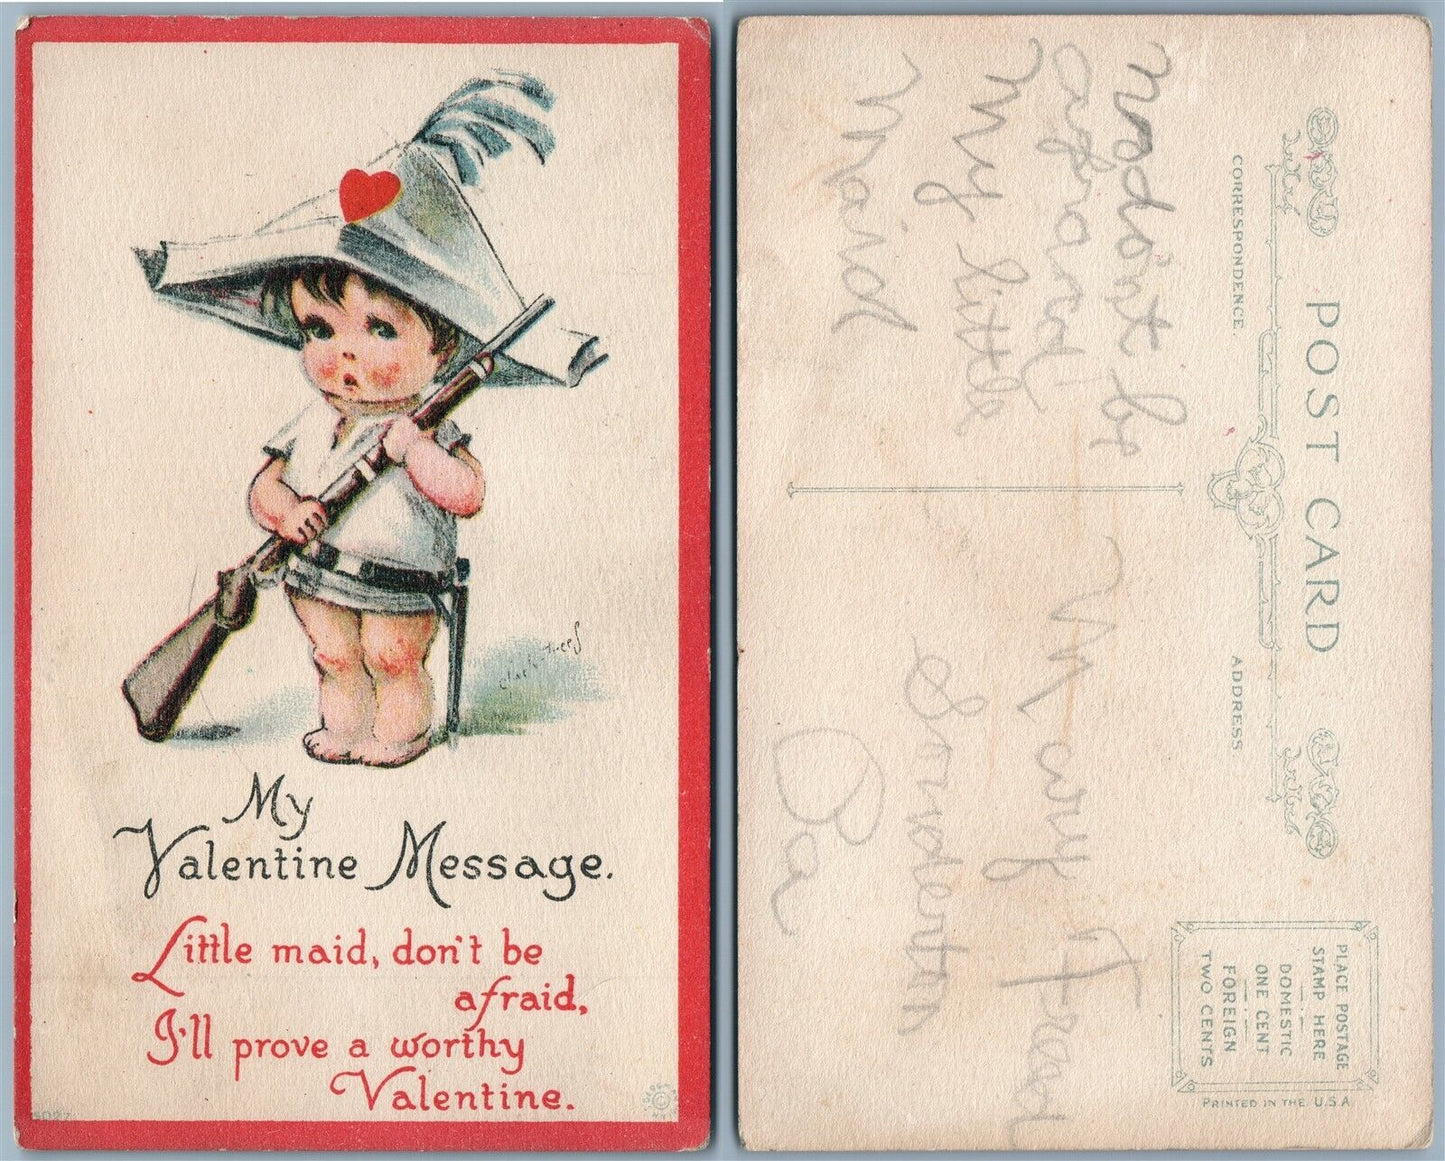 My
Valentine Message.
Little maid, don't be
afraid,
I'll prove a worthy
Valentine.
POST CARD
CORRESPONDENCE.
ADDRESS.
PLACE POSTAGE
STAMP HERE
DOMESTIC
ONE CENT
FOREIGN
TWO CENTS
PRINTED IN THE U.S.A
don't be
afraid
My little
Maid
Mary Fread
Pa